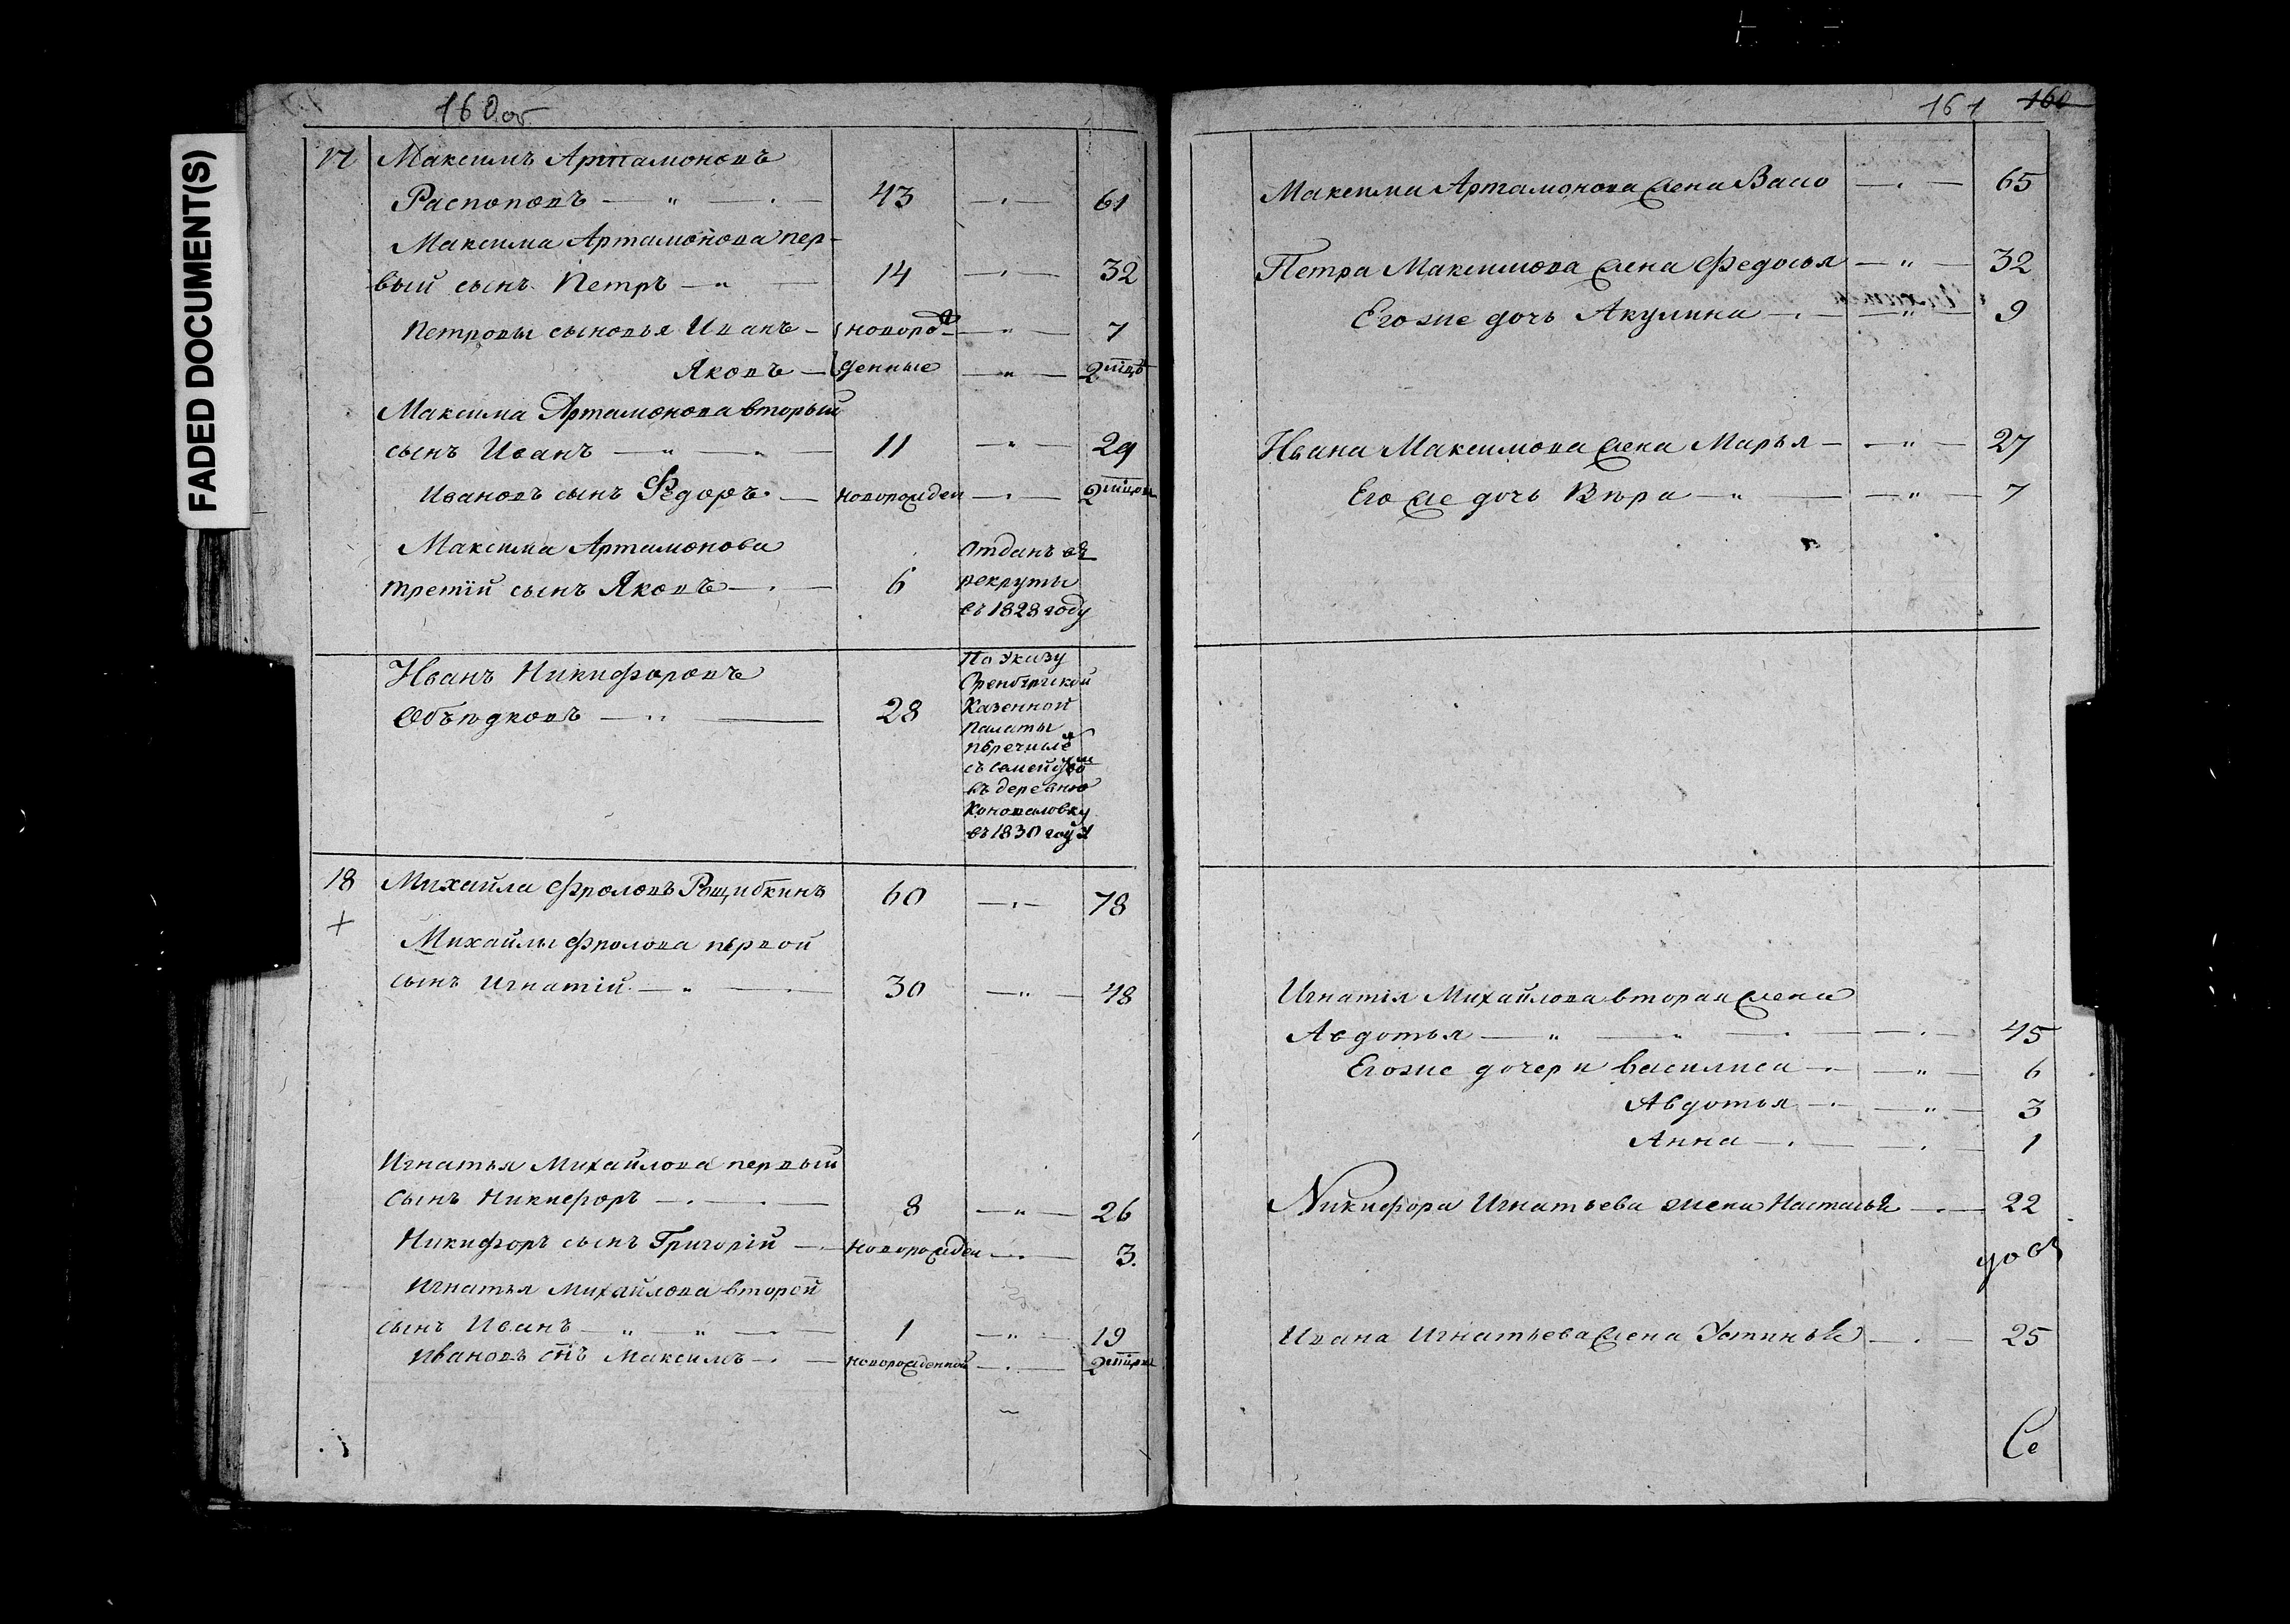 FADED DOCUMENT(S)
160 об
17 Максимъ Артамоновъ
Распоповъ 43 61
Максима Артамонова пер-
вый сынъ Петръ 14 32
Петровы сыновья Иванъ новоро 7
Яковъ жденные 2 мцъ
Максима Артамонова вторый
сынъ Иванъ 11 29
Ивановъ сынъ Федоръ новорожден 2
Максима Артамонова
третій сынъ Яковъ 6
отданъ въ
рекруты
въ 1828 году
Иванъ Никифоровъ
Объѣдковъ 28
По указу
Оренбургской
Казенной
палаты
перечисле
съ семейством
въ деревню
Коноваловку
въ 1830 году
18 Михайла Фроловъ Рощибкинъ 60 78
Михайлы Фролова первой
сынъ Игнатій 30 48
Игнатья Михайлова первый
сынъ Никифоръ 8 26
Никифоръ сынъ Григорій новорожден 3.
Игнатья Михайлова второй
сынъ Иванъ 1 19
Ивановъ снъ Максимъ новорожденной 2
161 160
Максима Артамонова жена Васо 65
Петра Максимова жена Федосья 32
Его же дочь Акулина 9
Ивана Максимова жена Марья 27
Его же дочь Вѣра 7
Игнатія Михайлова вторая жена
Авдотья 45
Его же дочери Василиса 6
Авдотья 3
Анна 1
Никифора Игнатьева жена Настасья 22
Ивана Игнатьева жена Устинья 25
Се